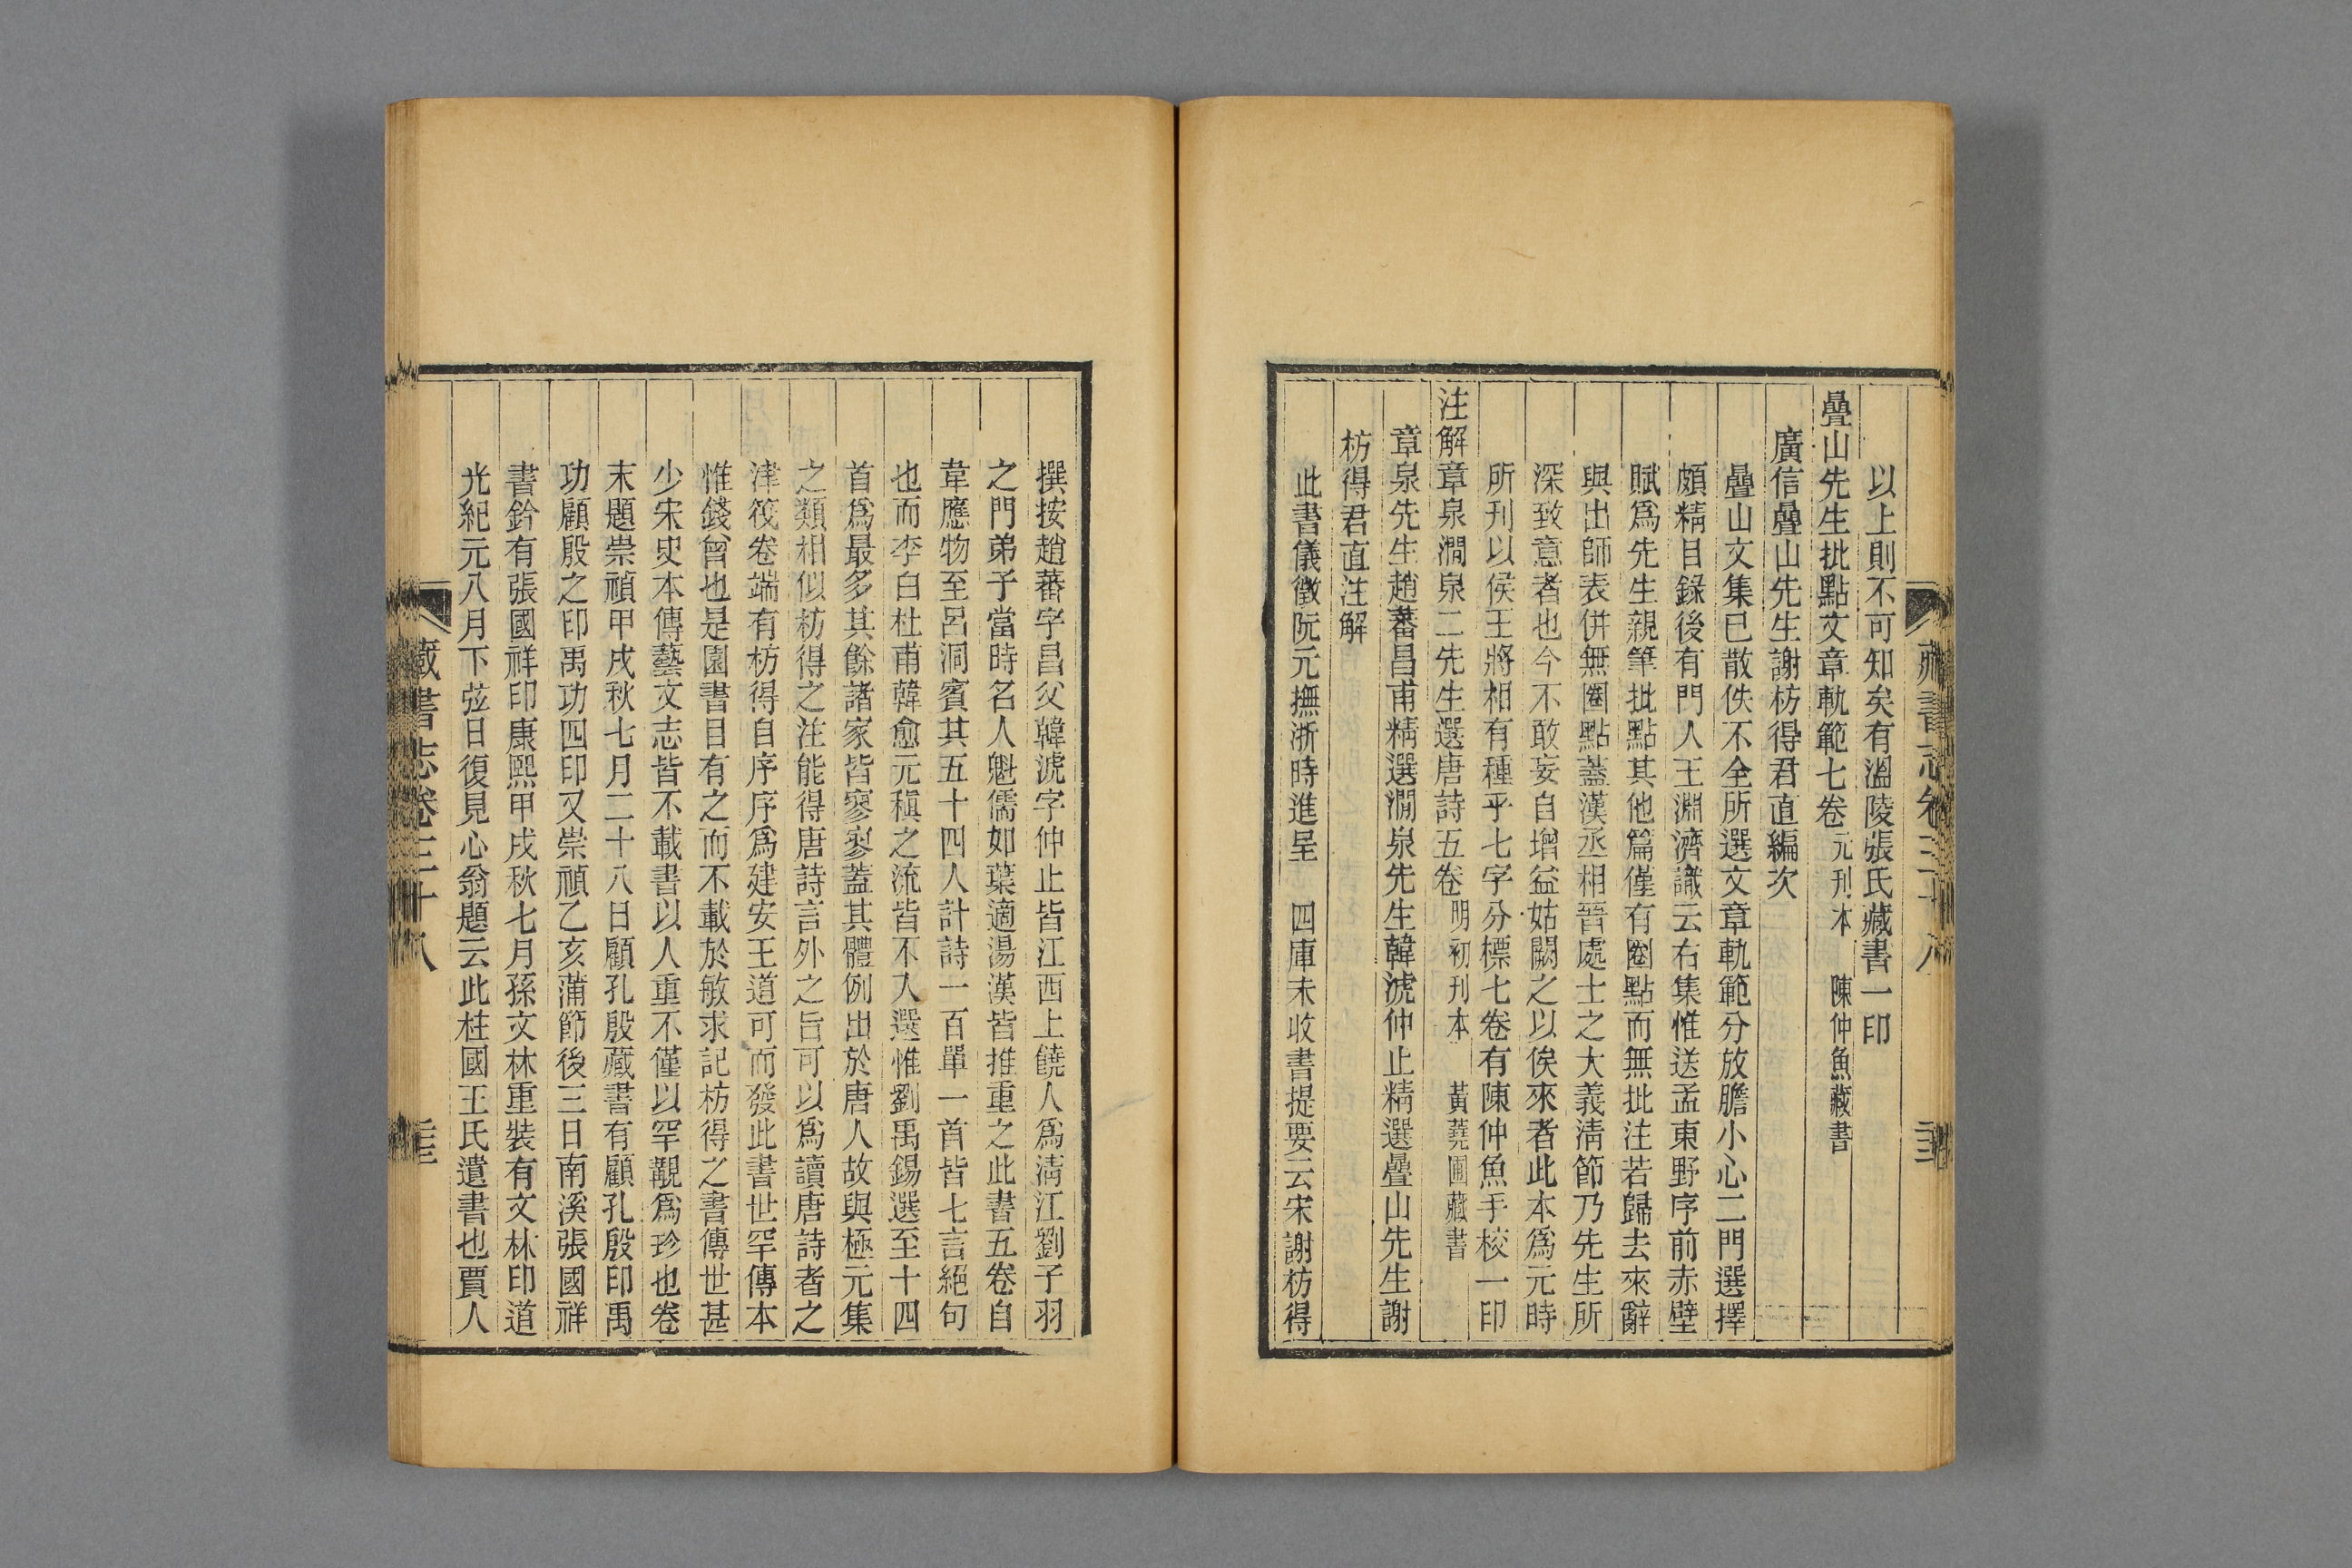 以上則不可知矣有溫陵張氏藏書一印
疊山先生批點文章軌範七卷 元刋本 陳仲魚藏書
廣信疊山先生謝枋得君直編次
疊山文集已散佚不全所選文章軌範分放膽小心二門選擇
頗精目錄後有門人王淵濟識云右集惟送孟東野序前赤壁
賦爲先生親筆批點其他篇僅有圈點而無批注若歸去來辭
與出師表併無圈點蓋漢丞相晉處士之大義淸節乃先生所
深致意者也今不敢妄自增益姑闕之以俟來者此本爲元時
所刋以侯王將相有種乎七字分標七卷有陳仲魚手校一印
注解章泉澗泉二先生選唐詩五卷 明初刋本 黃蕘圃藏書
章泉先生趙蕃昌甫精選澗泉先生韓淲仲止精選疊山先生謝
枋得君直注解
此書儀徵阮元撫浙時進呈 四庫未收書提要云宋謝枋得
撰按趙蕃字昌父韓淲字仲止皆江西上饒人爲淸江劉子羽
之門弟子當時名人魁儒如葉適湯漢皆推重之此書五卷自
韋應物至呂洞賓其五十四人計詩一百單一首皆七言絕句
也而李白杜甫韓愈元稹之流皆不入選惟劉禹錫選至十四
首爲最多其餘諸家皆寥寥蓋其體例出於唐人故與極元集
之類相似枋得之注能得唐詩言外之旨可以爲讀唐詩者之
津筏卷端有枋得自序序爲建安王道可而發此書世罕傳本
惟錢曾也是園書目有之而不載於敏求記枋得之書傳世甚
少宋史本傳藝文志皆不載書以人重不僅以罕覯爲珍也卷
末題崇禎甲戌秋七月二十八日顧孔殷藏書有顧孔殷印禹
功顧殷之印禹功四印又崇禎乙亥蒲節後三日南溪張國祥
書鈐有張國祥印康熙甲戌秋七月孫文林重裝有文林印道
光紀元八月下弦日復見心翁題云此柱國王氏遺書也賈人
藏書志卷三十八